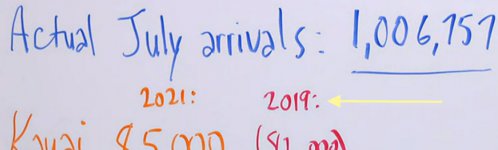 Actual July arrivals: 1,006,757
2021: 2019:
Kauai 85,000 (81,000)